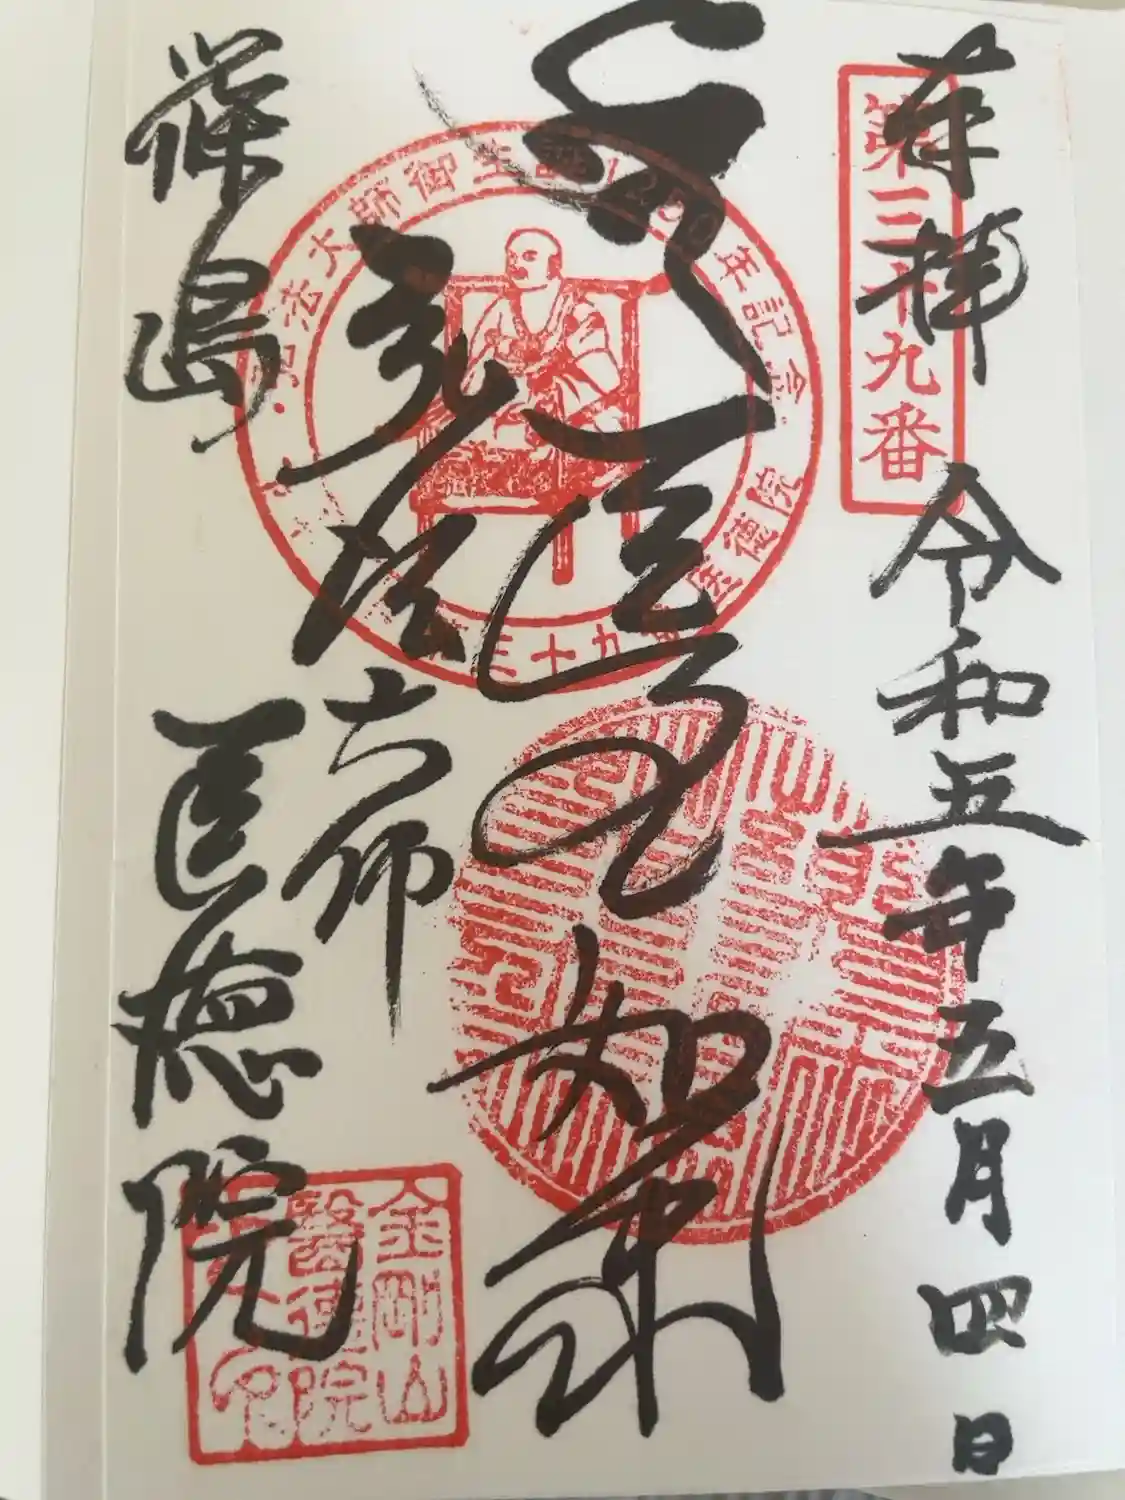 奉拝
令和五年五月四日
第三十九番
医王如来
弘法大師
弘法大師御生誕1250年記念
第三十九番 医徳院
篠島
医徳院
金剛山
醫德院